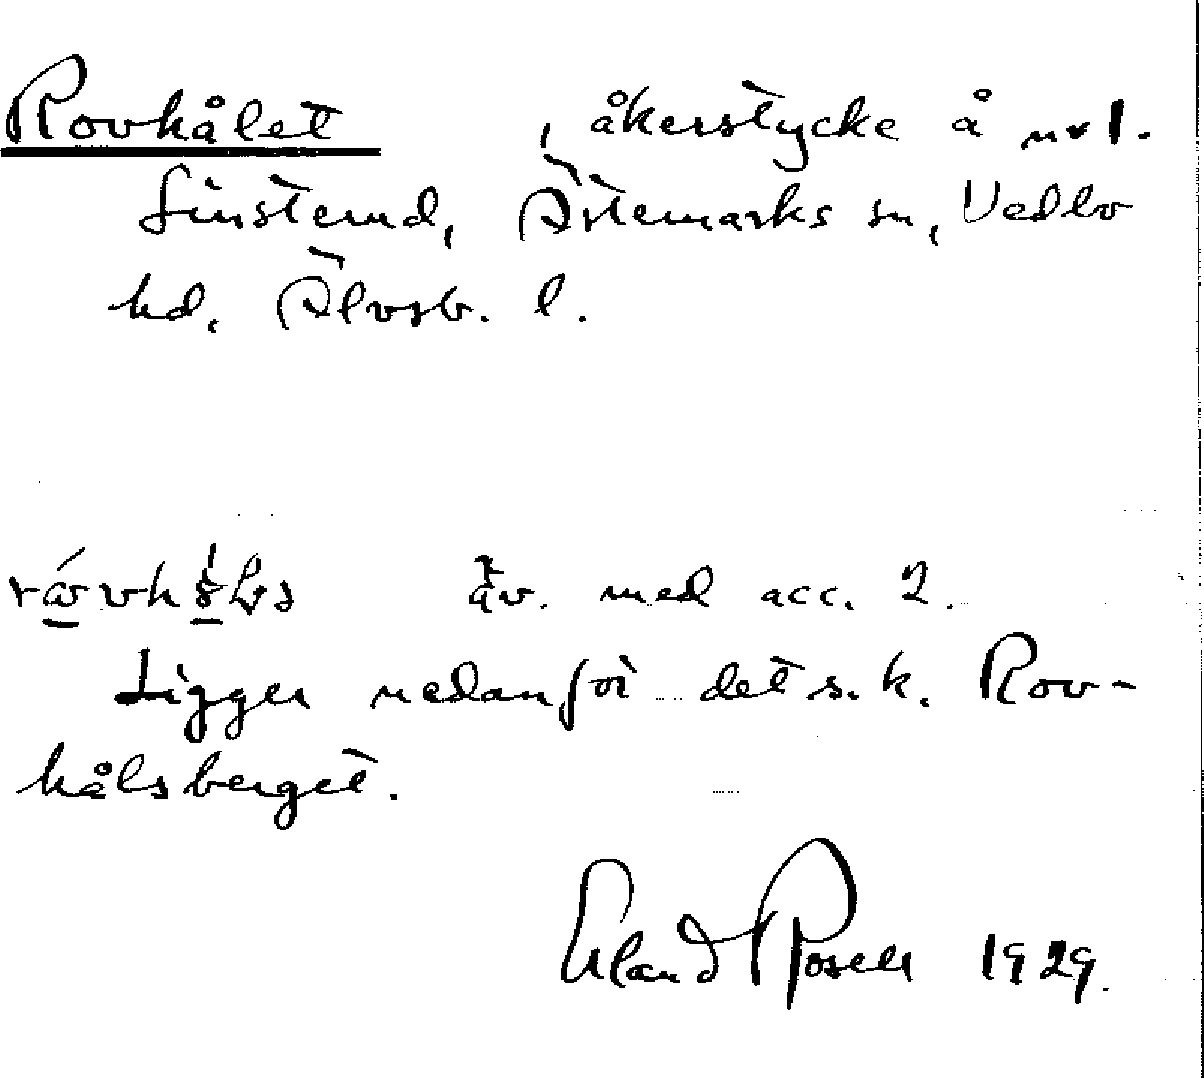 Rovkålet , åkerstycke å nr 1.
Linsterud, Ärtemarks sn, Vedbo
hd. Älvsb. l.
äv. med acc. 2.
Ligger nedanför det s.k. Rov-
kålsberget.
Erland Rosell 1929.